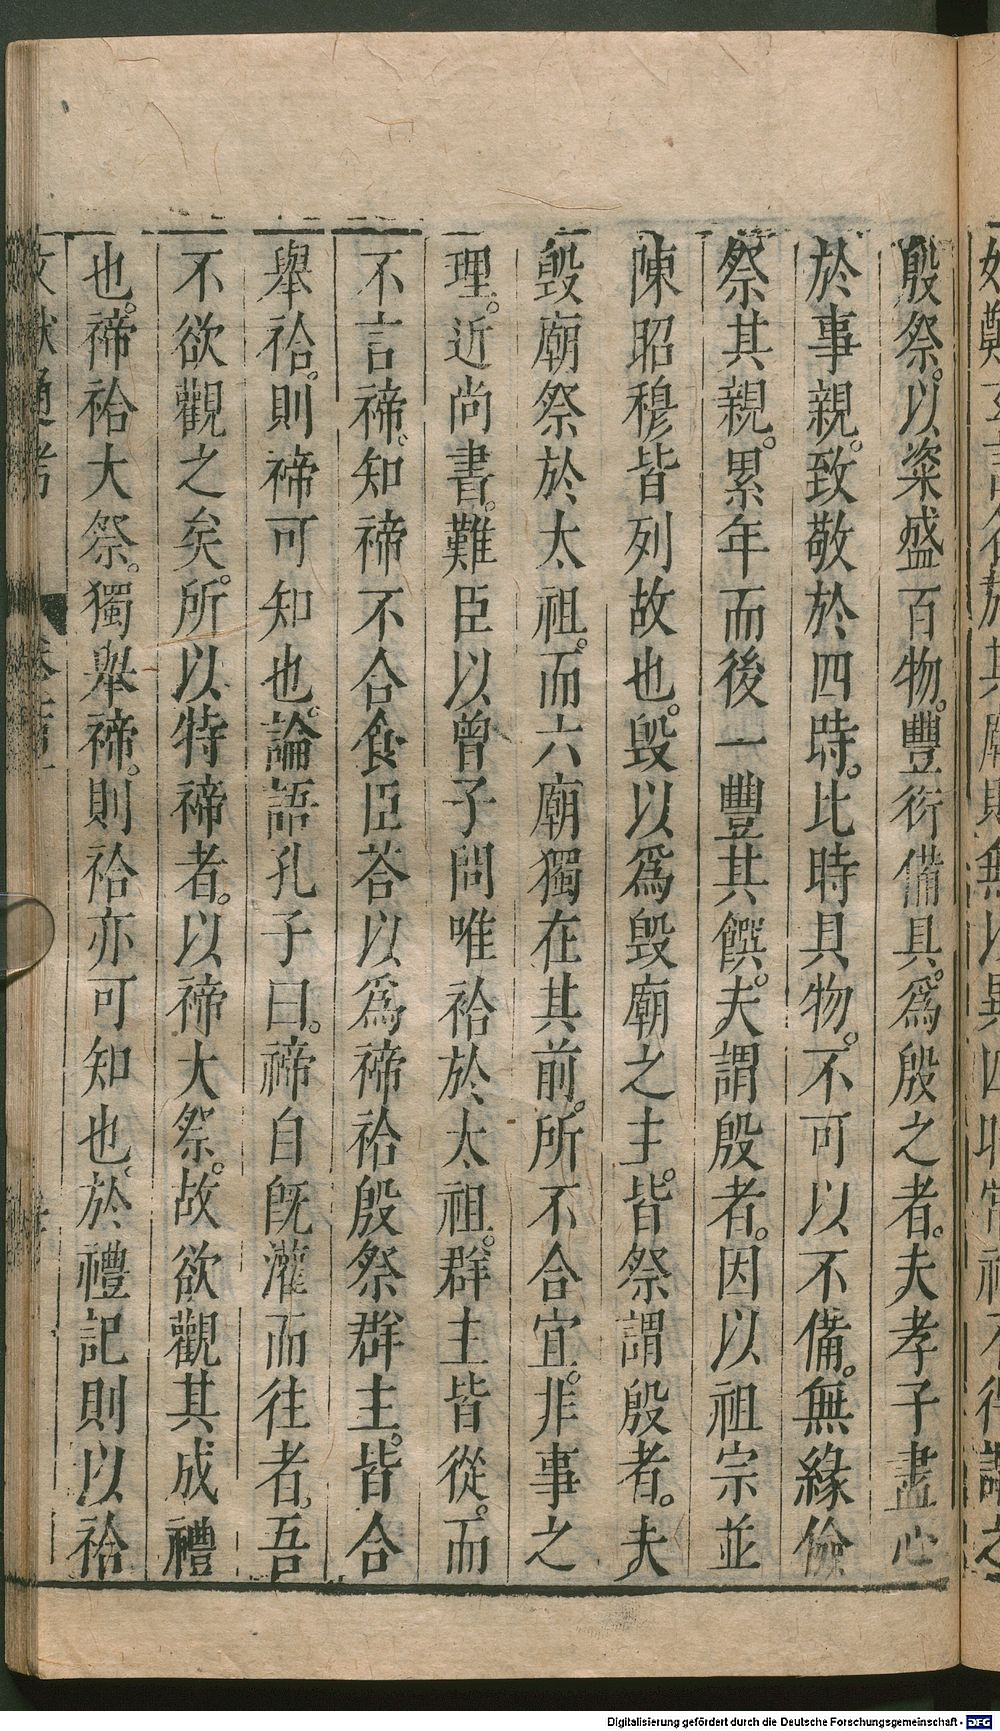 殷祭。以粢盛百物。豐衍備具。爲殷之者。夫孝子盡心
於事親。致敬於四時。比時具物。不可以不備。無緣儉
祭其親。累年而後一豐其饌。夫謂殷者。因以祖宗並
陳昭穆皆列故也。毀以爲毀廟之主。皆祭謂殷者。夫
毀廟祭於太祖。而六廟獨在其前。所不合宜。非事之
理。近尚書。難臣以曾子問唯祫於太祖。群主皆從。而
不言禘。知禘不合食臣荅以爲禘祫殷祭群主。皆合
舉祫。則禘可知也。論語孔子曰。禘自旣灌而往者。吾
不欲觀之矣。所以特禘者。以禘大祭。故欲觀其成禮
也。禘祫大祭。獨舉禘。則祫亦可知也。於禮記則以祫
文獻通考
Digitalisierung gefördert durch die Deutsche Forschungsgemeinschaft - DFG